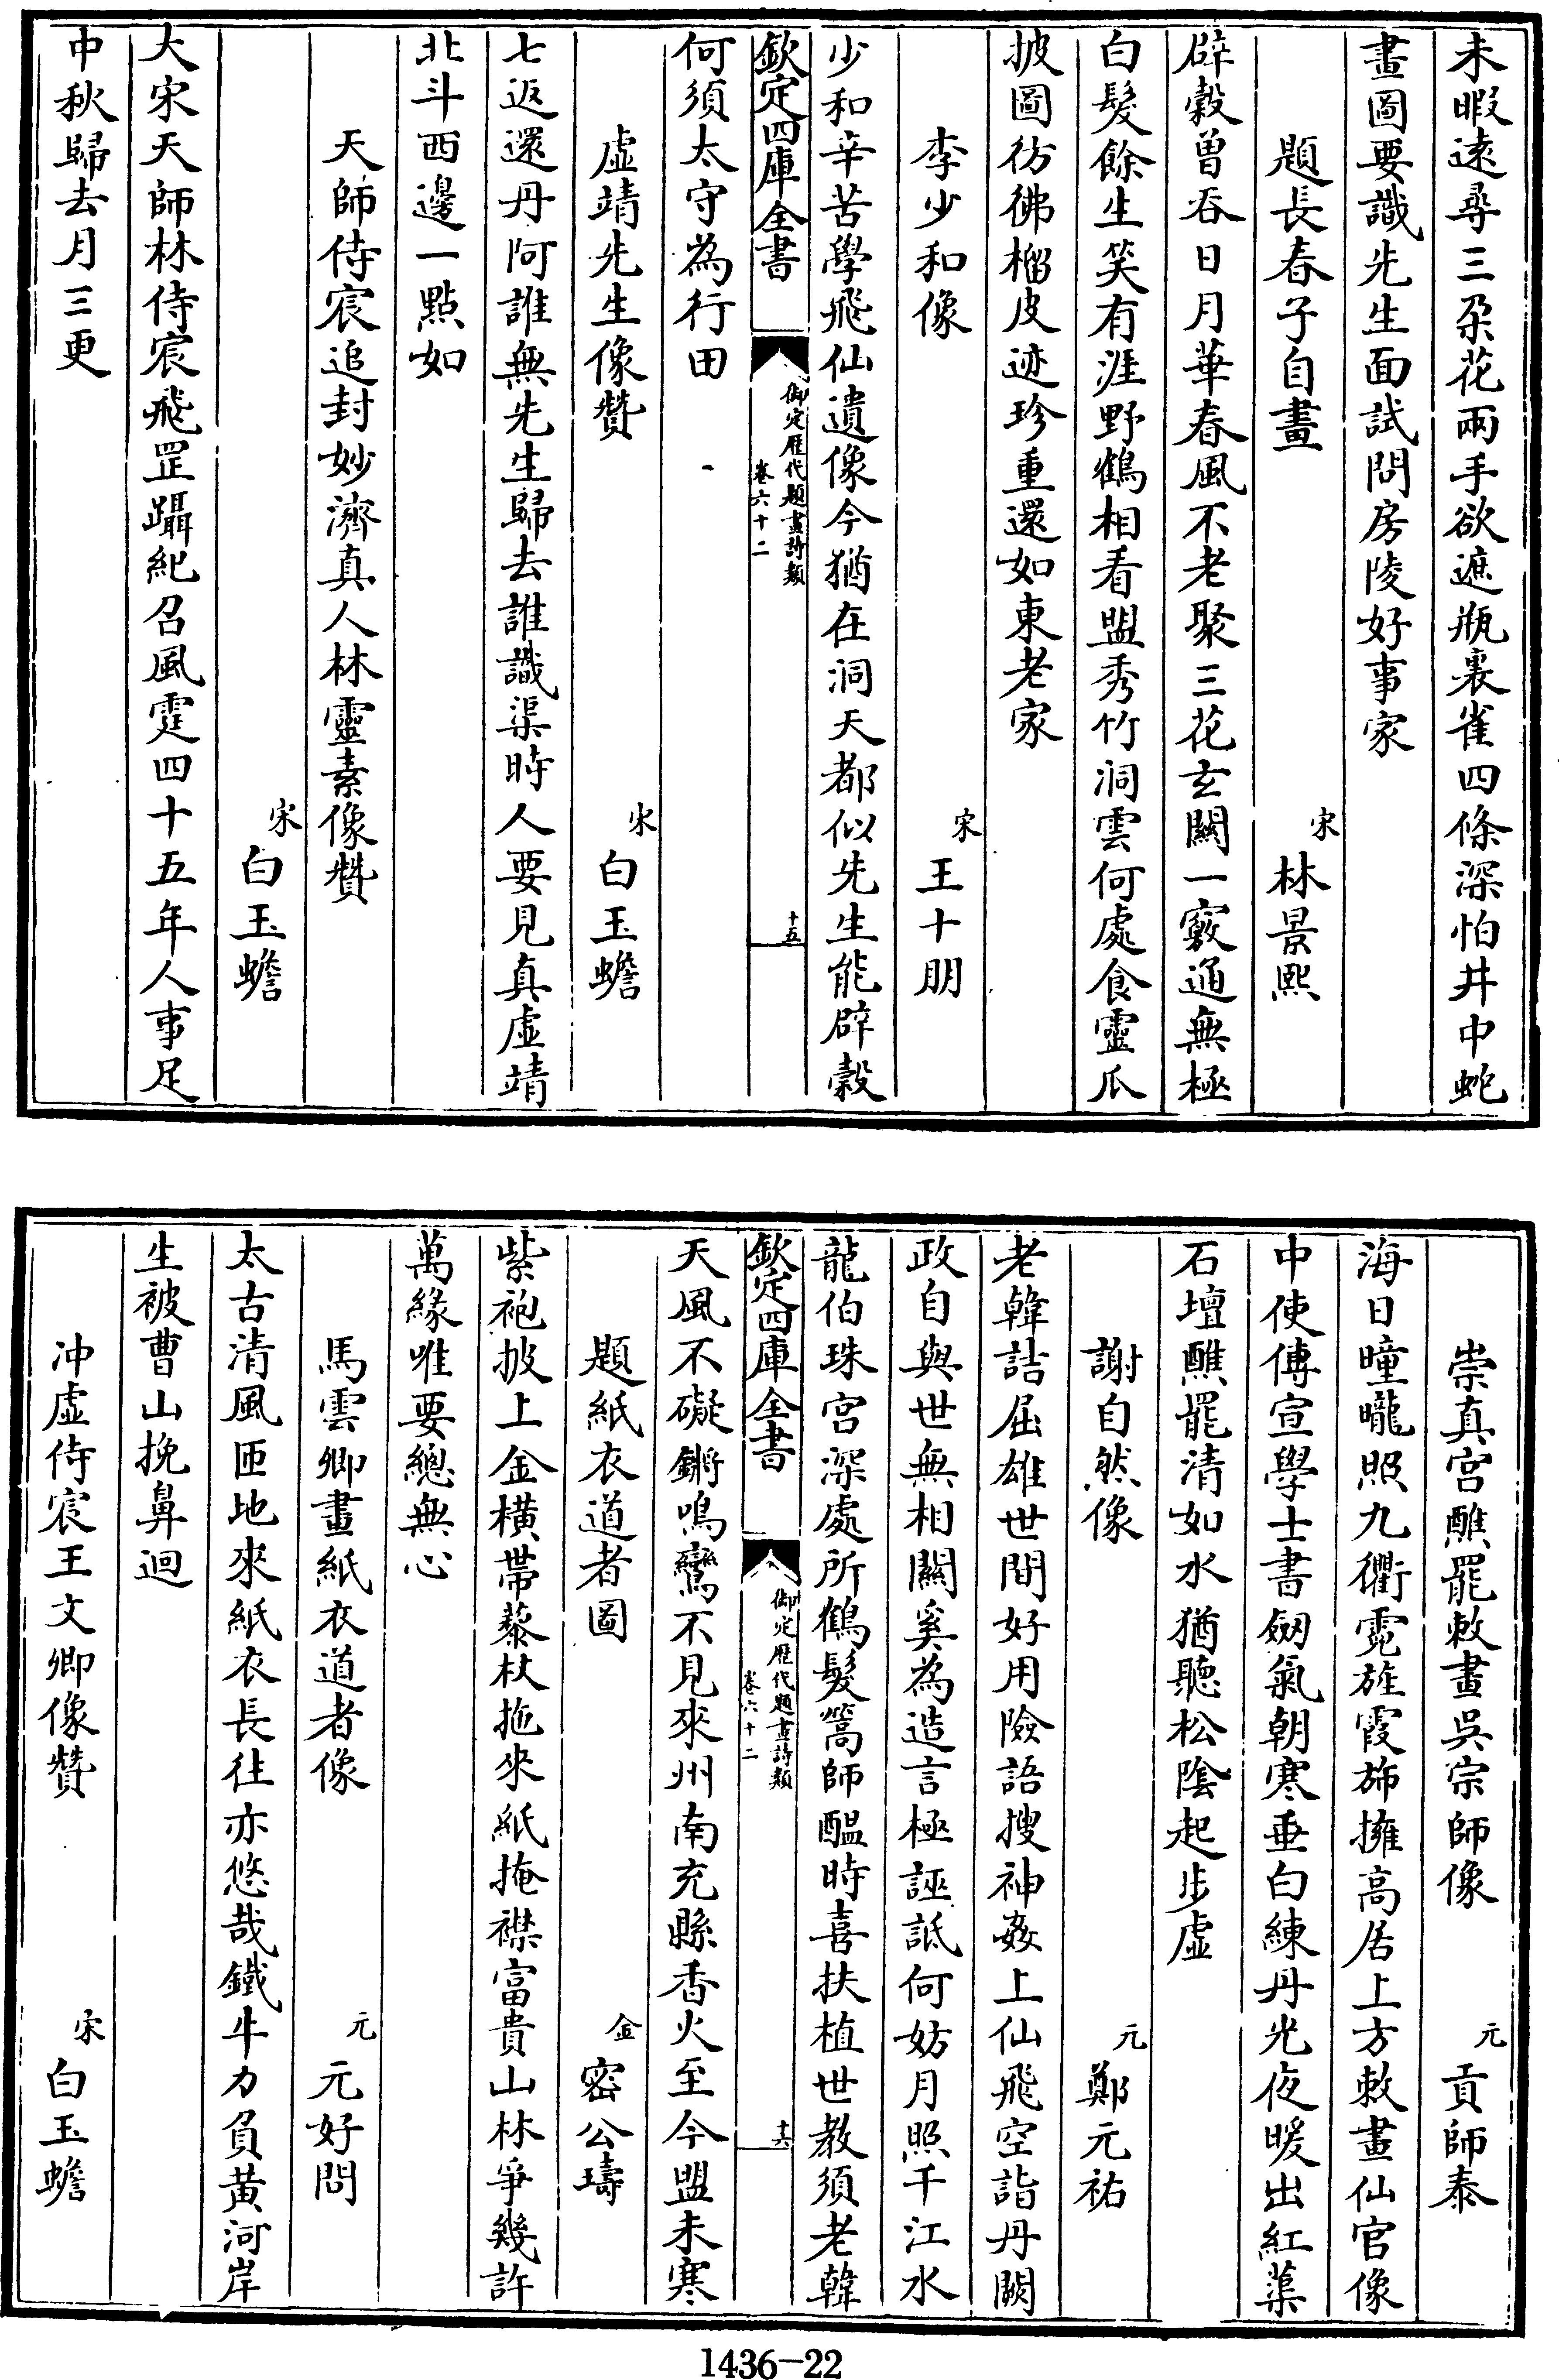 未暇遠尋三朶花兩手欲遮瓶裏雀四條深怕井中蛇
畫圖要識先生面試問房陵好事家
題長春子自畫
宋林景熙
辟穀曽吞日月華春風不老聚三花玄關一竅通無極
白髮餘生笑有涯野鶴相看盟秀竹洞雲何處食靈瓜
披圖彷彿榴皮迹珍重還如東老家
李少和像
宋王十朋
少和辛苦學飛仙遺像今猶在洞天都似先生能辟穀
欽定四庫全書
御定歴代題畫詩類
卷六十二
十五
何須太守為行田
虚靖先生像贊
宋白玉蟾
七返還丹阿誰無先生歸去誰識渠時人要見真虚靖
北斗西邊一點如
天師侍宸追封妙濟真人林靈素像贊
宋白玉蟾
大宋天師林侍宸飛罡躡紀召風霆四十五年人事足
中秋歸去月三更
崇真宫醮罷敕畫吳宗師像
元貢師泰
海日曈曨照九衢霓旌霞斾擁高居上方敕畫仙官像
中使傳宣學士書劒氣朝寒垂白練丹光夜暖出紅蕖
石壇醮罷清如水猶聽松陰起步虚
謝自然像
元鄭元祐
老韓詰屈雄世間好用險語搜神姦上仙飛空詣丹闕
政自與世無相關奚為造言極誣詆何妨月照千江水
龍伯珠宫深處所鶴髮篙師醖時喜扶植世教須老韓
欽定四庫全書
御定歴代題畫詩類
卷六十二
十六
天風不礙鏘鳴鸞不見來州南充縣香火至今盟未寒
題紙衣道者圖
金密公璹
紫袍披上金横帶藜杖拖來紙掩襟富貴山林爭幾許
萬緣唯要總無心
馬雲卿畫紙衣道者像
元元好問
太古清風匝地來紙衣長往亦悠哉鐵牛力負黄河岸
生被曹山挽鼻迴
冲虚侍宸王文卿像贊
宋白玉蟾
1436-22